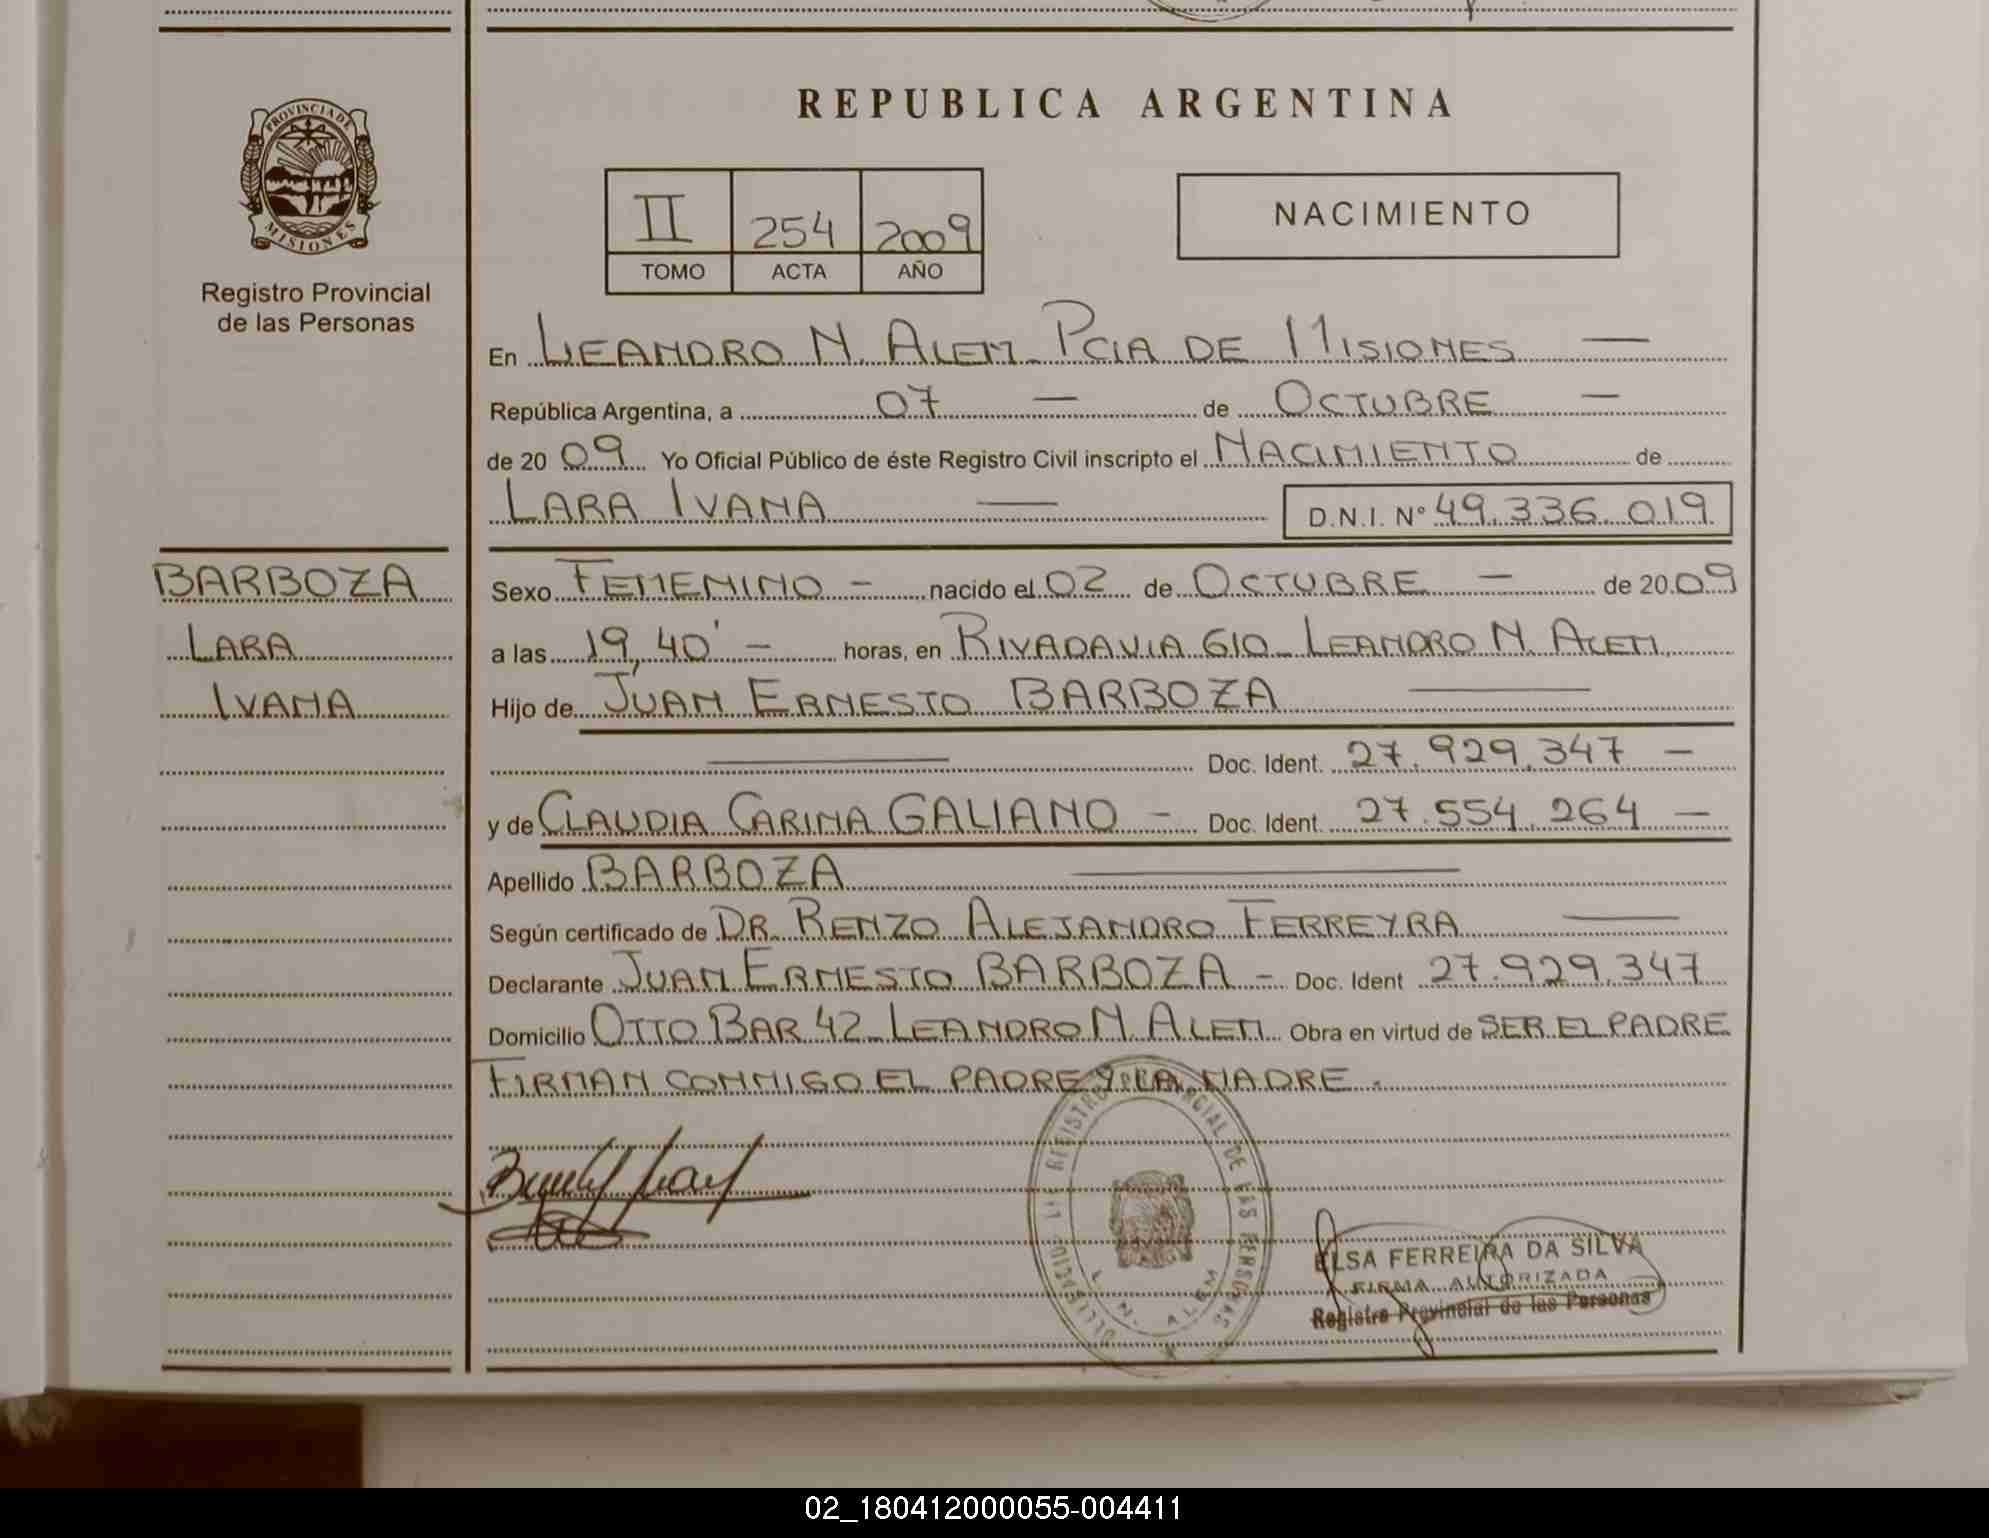 REPUBLICA ARGENTINA
PROVINCIA DE
MISIONES
Registro Provincial
de las Personas
II 254 2009
TOMO ACTA AÑO
NACIMIENTO
En LEANDRO N. ALEM PCIA DE MISIONES —
República Argentina, a 07 — de OCTUBRE —
de 20 09 Yo Oficial Público de éste Registro Civil inscripto el NACIMIENTO de
LARA IVANA — D.N.I. Nº 49.336.019
BARBOZA
LARA
IVANA
Sexo FEMENINO — nacido el 02 de OCTUBRE — de 20 09
a las 19,40' — horas, en RIVADAVIA 610 LEANDRO N. ALEM
Hijo de JUAN ERNESTO BARBOZA —
— Doc. Ident. 27.929.347 —
y de CLAUDIA CARINA GALIANO — Doc. Ident. 27.554.264 —
Apellido BARBOZA —
Según certificado de DR. RENZO ALEJANDRO FERREYRA —
Declarante JUAN ERNESTO BARBOZA — Doc. Ident 27.929.347
Domicilio OTTO BAR 42 LEANDRO N. ALEM Obra en virtud de SER EL PADRE
FIRMAN CONMIGO EL PADRE Y LA MADRE.
DE LAS PERSONAS
L. N. ALEM
ELSA FERREIRA DA SILVA
FIRMA AUTORIZADA
Registro Provincial de las Personas
02_180412000055-004411